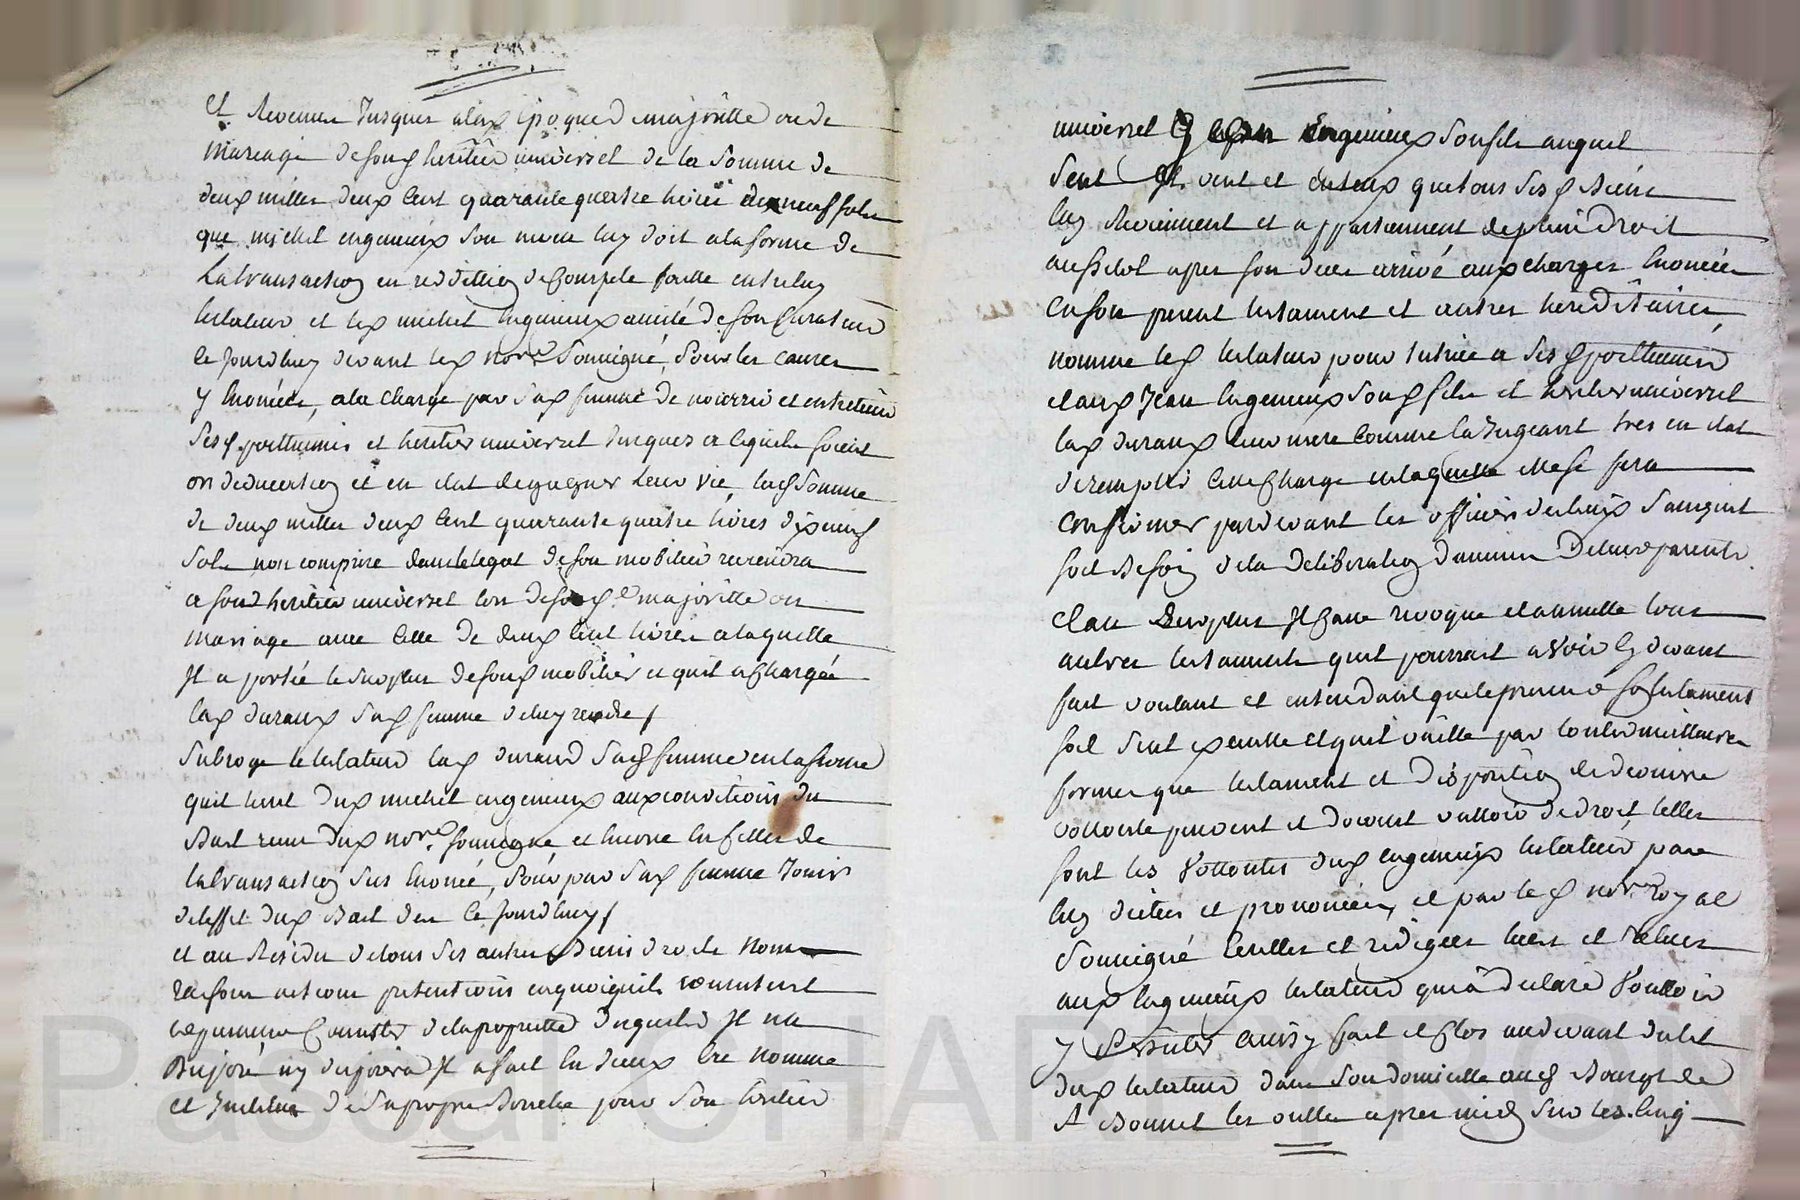 et revenu Jusques alad époque de majoritté ou de
mariage de sond heritier universel de la somme de
deux milles deux cent quarante quatre livres dixneuf sols
que michel engenieux son neveu luy doit a la forme de
La transaction en redittion de compte faitte entre luy
testateur et led michel Engenieux assisté de son Curateur
ce jourdhuy devant led no.re soussigné, pour les causes
y Enoncées, a la charge par sad femme de nourrir et entretenir
sesd posthumes et heritier universel Jusques a ce quils soient
en education et en etat de gagner Leur vie, lad somme
de deux milles deux Cent quarante quatre livres dixneuf
sols non comprise dans le legat de son mobilier reviendra
a sond heritier universel lors de sad majoritté ou
mariage avec celle de deux cent livres a laquelle
Il a portée le surplus de sond mobilier et quil a Chargée
lad duraux sad femme de luy rendre /
subroge le testateur lad duraud sad femme en la ferme
quil tient dud michel engenieux aux conditions du
Bail reçu dud no.re soussigné et encore en celles de
la transaction sus Enoncé, pour par sad femme Jouir
de l'effet dud Bail des ce jourdhuy /
et au Residu de tous ses autres Biens droits noms
raisons actions pretentions en quoiquils consistent
dequels Il na
disposé ny disposera Il a fait en iceux Et nomme
et Institue de sa propre Bouche pour son heritier
universel Jean Engenieux son fils auquel
Il veut et entend que tous sesd Biens
luy Reviennent et appartiennent de plein Droit
aussitot apres son deces arrivé aux charges Enoncées
en son present testament et autres hereditaires,
nomme led testateur pour tutrice a sesd posthumes
et aud Jean Engenieux sond fils et heritier universel
lad duraux leur mere comme la Jugeant tres en etat
de remplir cette charge en laquelle elle se fera
Confirmer pardevant les officiers des lieux sans quil
soit Besoin de la deliberation d'aucuns De leurs parents.
Et au Surplus Il Casse revoque et annulle tous
autres testaments quil pourrait avoir Cy devant
fait voulant et entendant que le present testament
soit seul executté et quil vaille par toutes meilleures
formes que testament et disposition de derniere
vollonté peuvent et doivent valloir de droit telles
sont les Vollontés dud engenieux testateur, par
luy dictées et prononcées, et par led no.re royal
soussigné écrittes et redigées lues et Relues
aud Engenieux testateur qui a declaré Voulloir
y persister ainsy fait et Clos au devant du lit
dud testateur dans son domicille aud Bourg de
St Bonnet les oulles apres midy sur les cinq